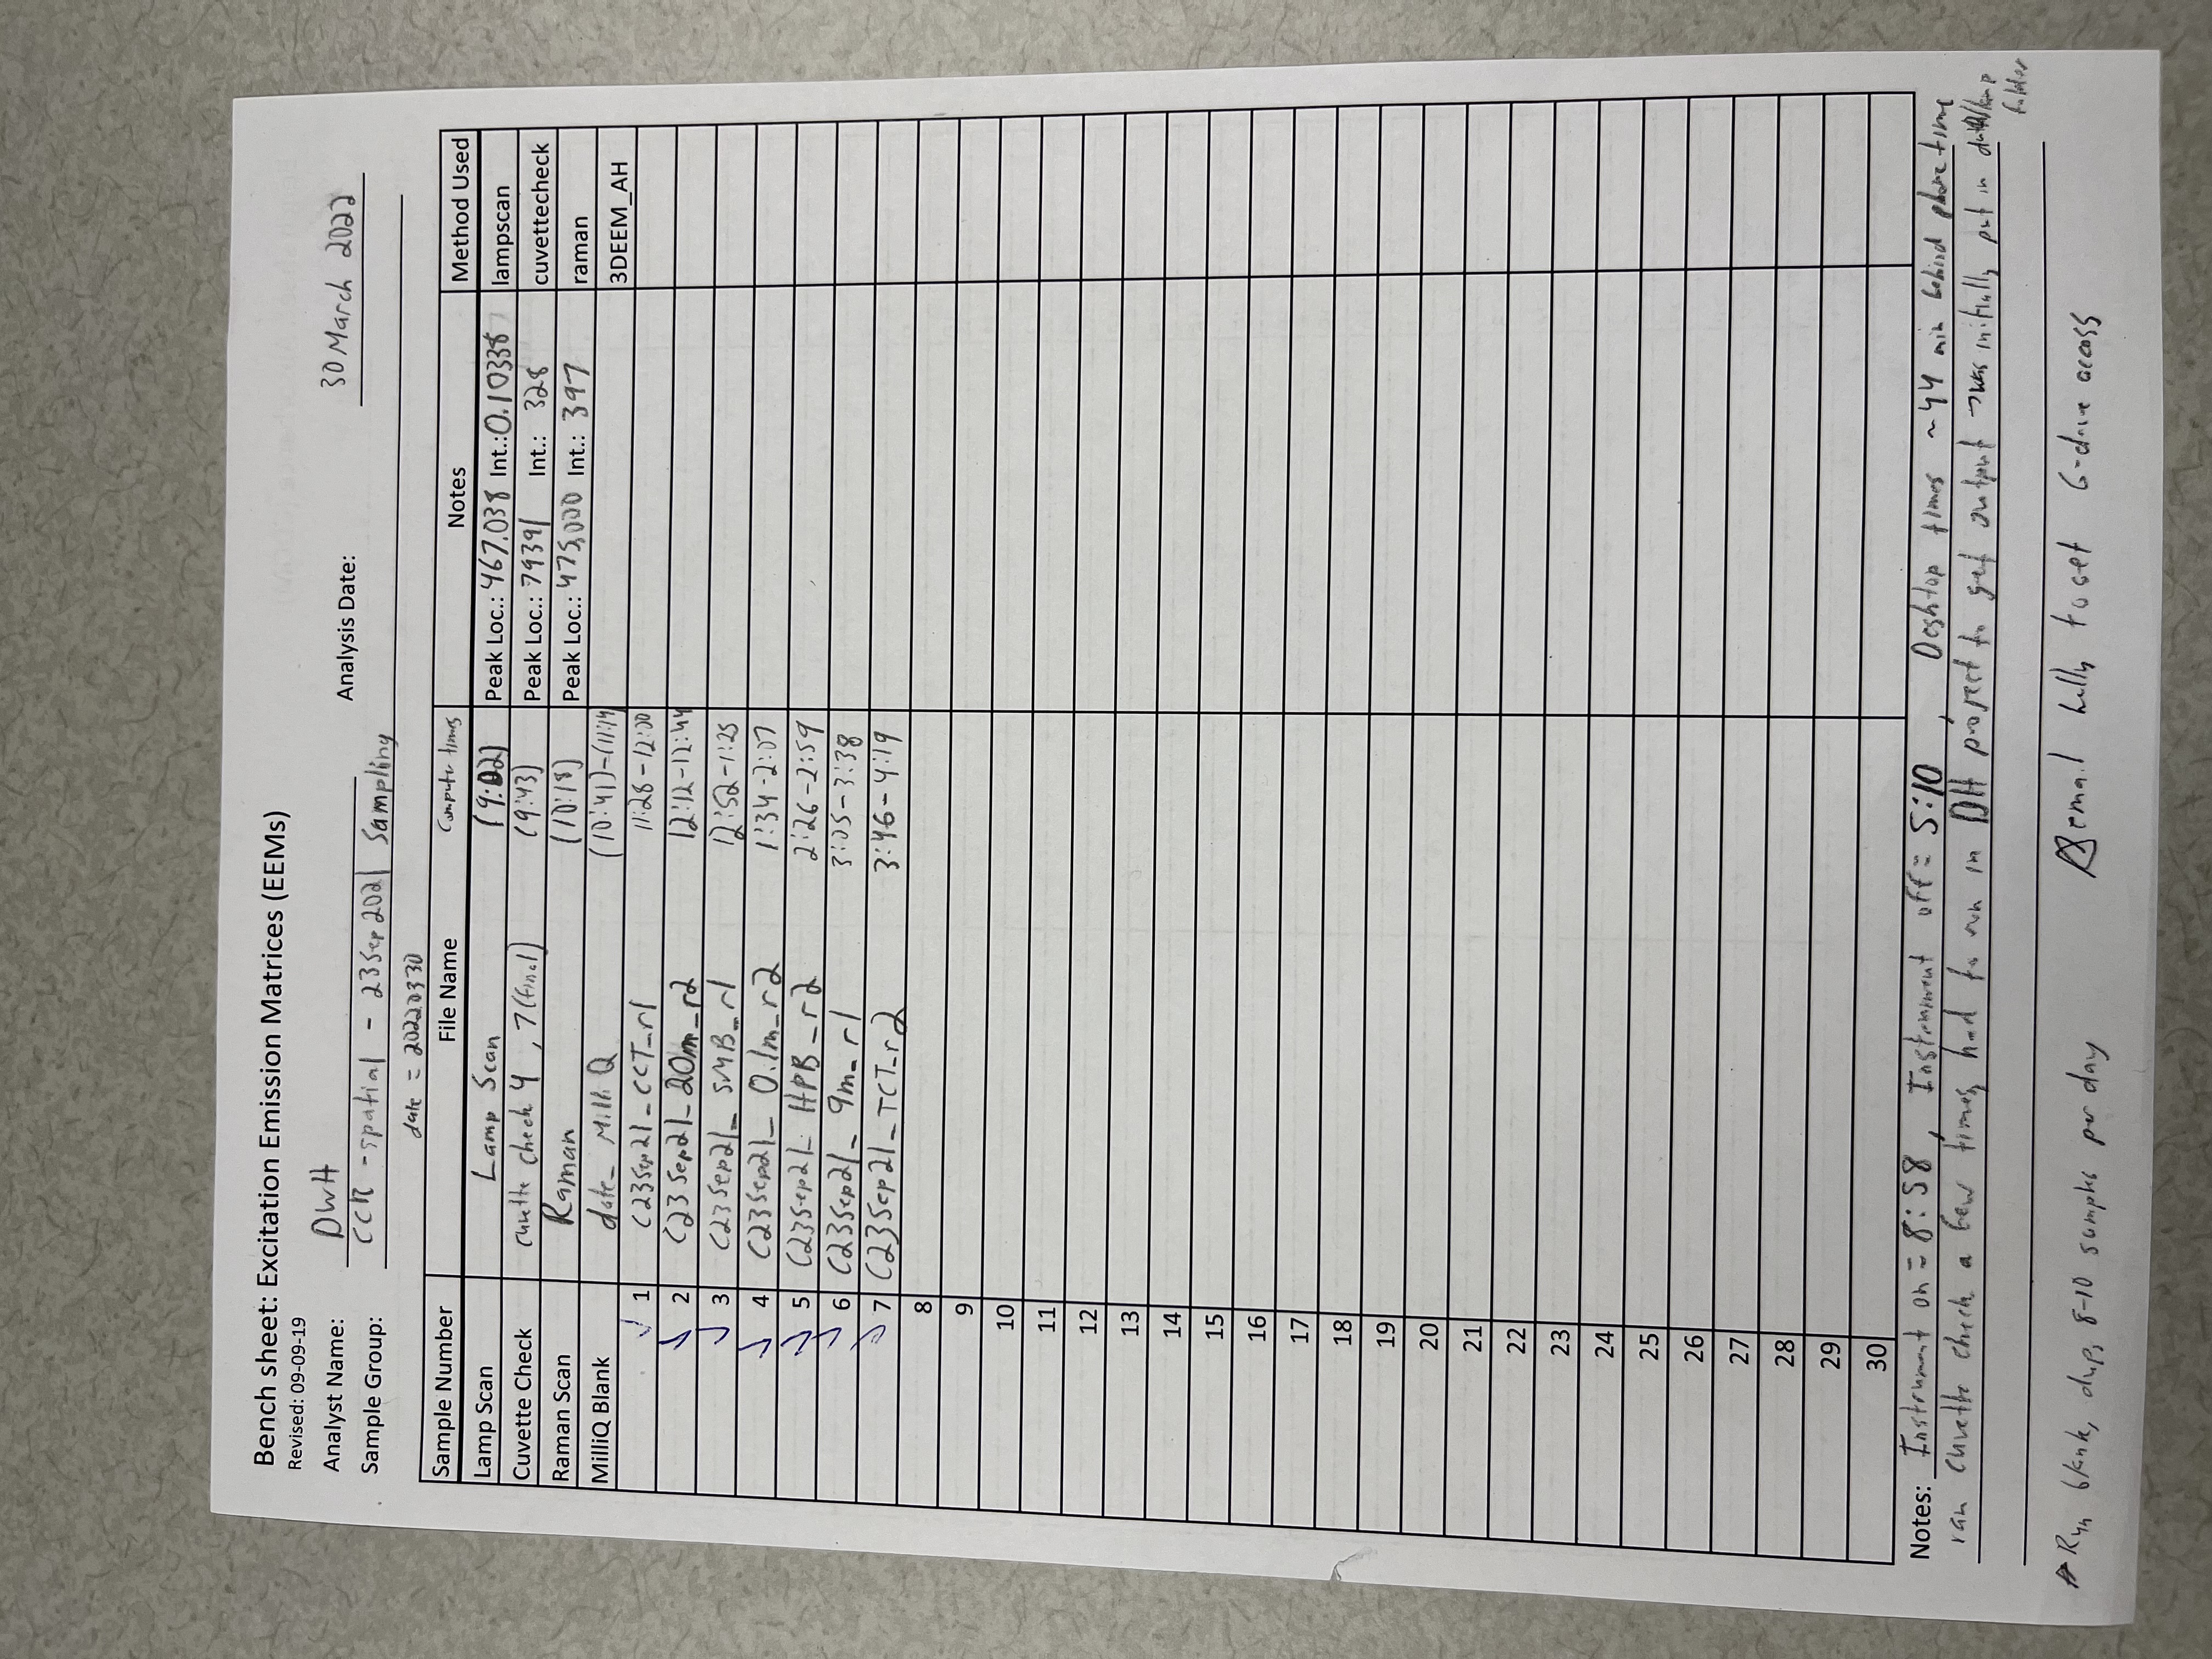 Bench sheet: Excitation Emission Matrices (EEMs)
Revised: 09-09-19
Analyst Name: DWH Analysis Date: 30 March 2022
Sample Group: CCR - spatial - 23Sep2021 Sampling
date = 20220330
Sample Number File Name Computer times Notes Method Used
Lamp Scan Lamp Scan (9:02) Peak Loc.: 467.038 Int.: 0.10338 lampscan
Cuvette Check cuvette check 4, 7(final) (9:43) Peak Loc.: 79391 Int.: 328 cuvettecheck
Raman Scan Raman (10:18) Peak Loc.: 475,000 Int.: 397 raman
MilliQ Blank date_ MilliQ (10:41)-(11:14 3DEEM_AH
1 C23Sep21_CCT_r1 11:28-12:00
2 C23Sep21_20m_r2 12:12-12:44
3 C23Sep21_SMB_r1 12:52-1:25
4 C23Sep21_0.1m_r2 1:34-2:07
5 C23Sep21_HPB_r2 2:26-2:59
6 C23Sep21_9m_r1 3:05-3:38
7 C23Sep21_TCT_r2 3:46-4:19
8
9
10
11
12
13
14
15
16
17
18
19
20
21
22
23
24
25
26
27
28
29
30
Notes: Instrument on = 8:58, Instrument off = 5:10, Desktop times ~44 min behind phone time
ran cuvette check a few times, had to run in DH project to get output → was initially put in
folder
Run blank, dup, 8-10 samples per day email to get G-drive access